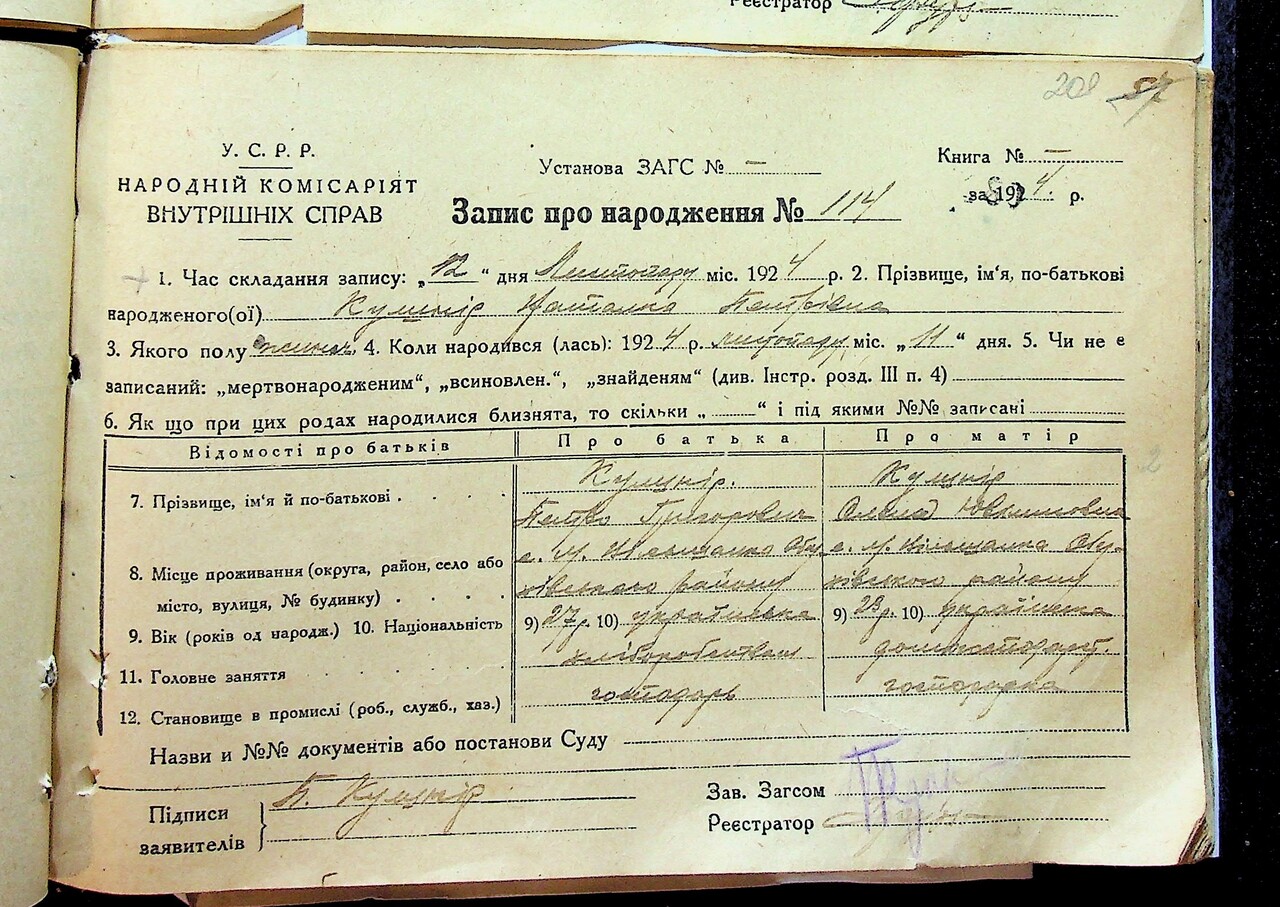 Реєстратор
201 57
У. С. Р. Р.
НАРОДНІЙ КОМІСАРІЯТ
ВНУТРІШНІХ СПРАВ
Установа ЗАГС № —
Книга № —
за 1924 р.
Запис про народження № 114
1. Час складання запису: „12" дня Листопаду міс. 1924 р. 2. Прізвище, ім'я, по-батькові
народженого(ої) Кушнір Наталка Петрівна
3. Якого полу жіноч. 4. Коли народився (лась): 1924 р. листопаду міс. „11" дня. 5. Чи не є
записаний: „мертвонародженим", „всиновлен.", „знайденям" (див. Інстр. розд. III п. 4)
6. Як що при цих родах народилися близнята, то скільки „ " і під якими №№ записані
Відомості про батьків Про батька Про матір
7. Прізвище, ім'я й по-батькові
Кушнір. Кушнір
Петро Григорович Олена
8. Місце проживання (округа, район, село або
місто, вулиця, № будинку)
с. М. Вільшанка Обу с. М. Вільшанка Обу-
хівського району хівського району
9. Вік (років од народж.) 10. Національність 9) 27 р. 10) українська 9) 23 р. 10) українська
11. Головне заняття хліборобством
12. Становище в промислі (роб., служб., хаз.) господарь господарка
Назви и №№ документів або постанови Суду
Підписи
заявителів
П. Кушнір
Зав. Загсом
Реєстратор